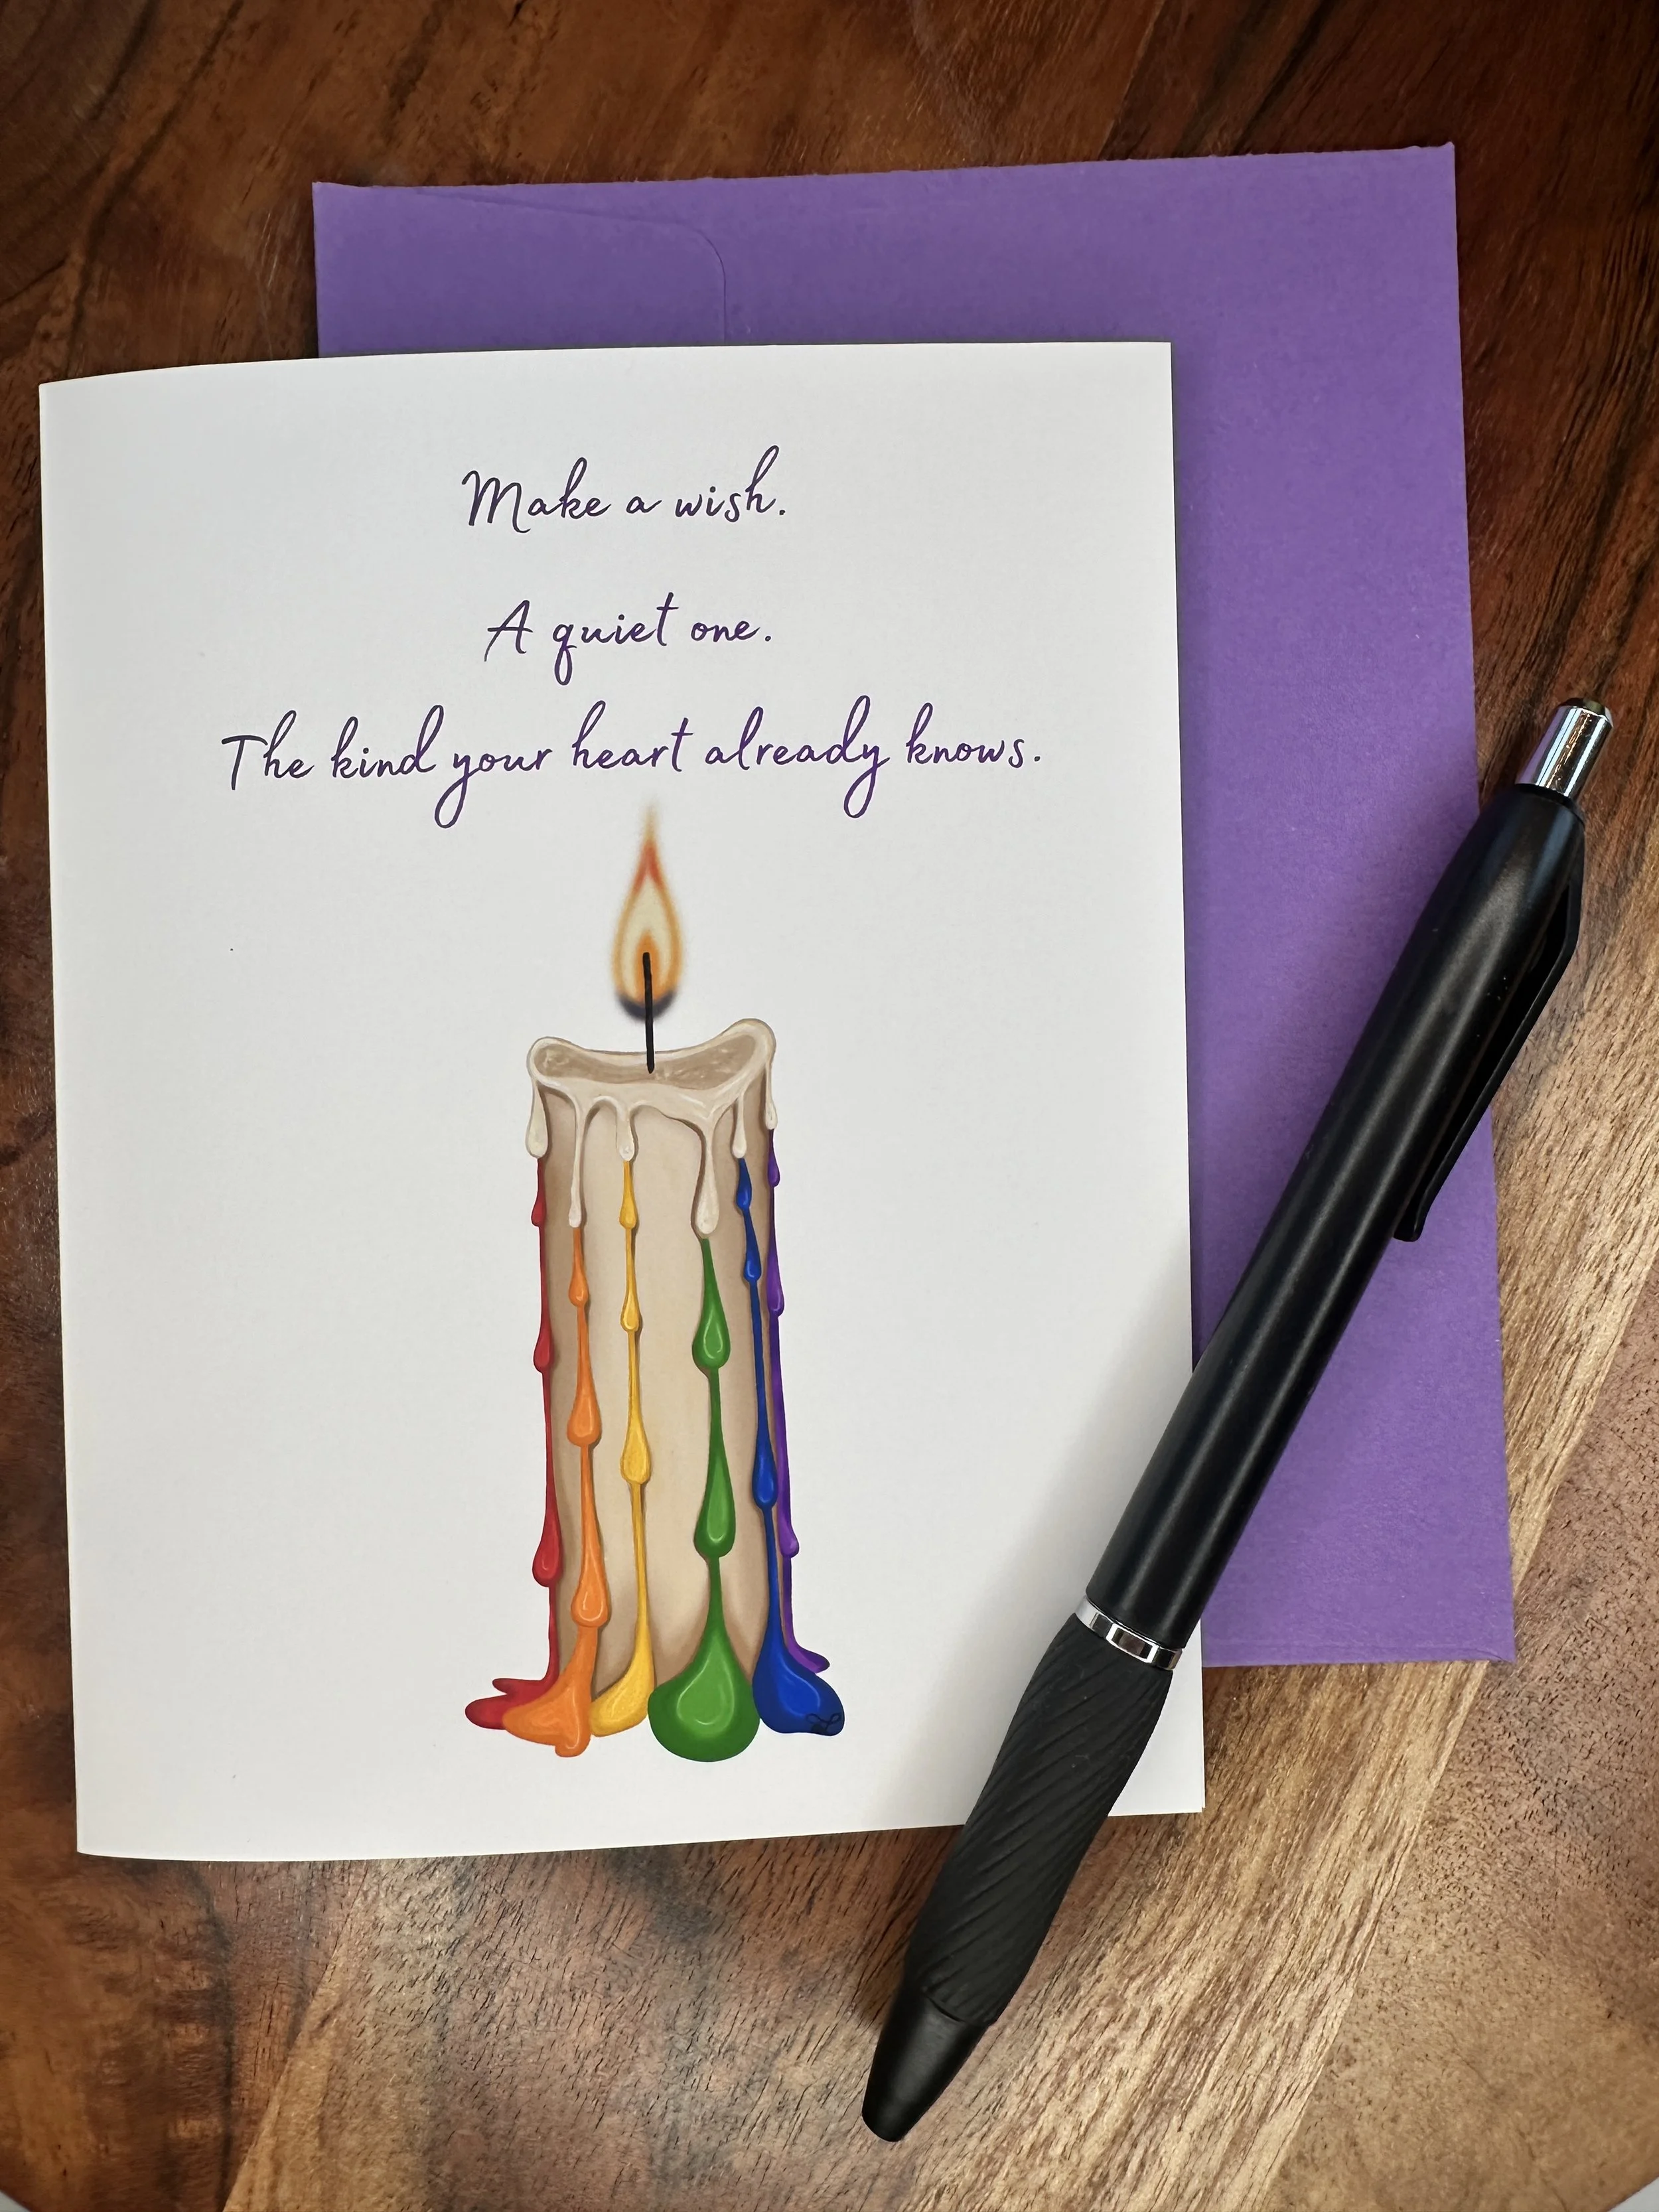 Make a wish.
A quiet one.
The kind your heart already knows.